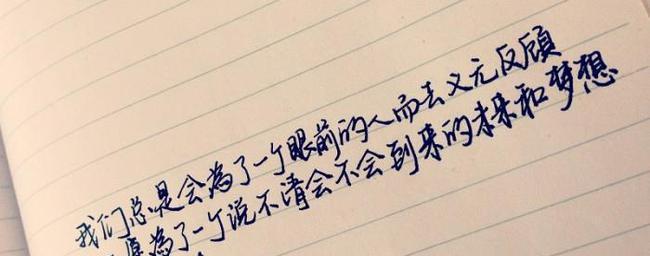 我们总是会為了一个眼前的人而去义无反顾
愿為了一个说不清会不会到来的未来和梦想